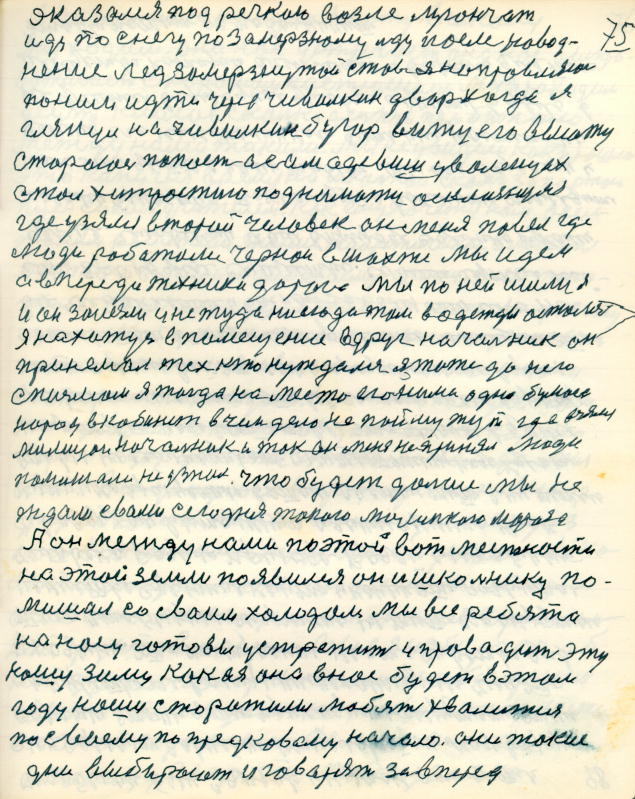 75
оказался под речкою возле
иду по снегу по замерзному льду после навод-
нение лед замерзнутой стов я направлялся
пошли идти через чивилкин двор когда я
глянул на чивилкин бугор вижу его вышку
старогое а сам
стал хитростию поднимати
где узяли второй человек он меня повел где
люди работали черной в шахте мы идем
а впереди техника дорога мы по ней шли я
и он зашели и не туда ни сюда там в одежды
я нахожусь в помещение вдруг началник он
принемал тех кто нуждался я тоже до него
я тогда на место его нима одна бумага
народ в кабинет в чем дело не пойму тут где
милицои началник и так он меня не принял люди
помишали не узнал. что будет далше мы не
ждали с вами сегодня такого мороза
А он между нами по этой вот местности
на этой земли появился он и школнику по-
мишал со своим холодом мы все ребята
на носу готовы устретит и провадит эту
нашу зиму какая она в нас будет в этом
году наши старожили любят хвалится
по своему по предковому начало. они такие
дни выбирают и говарят завперед